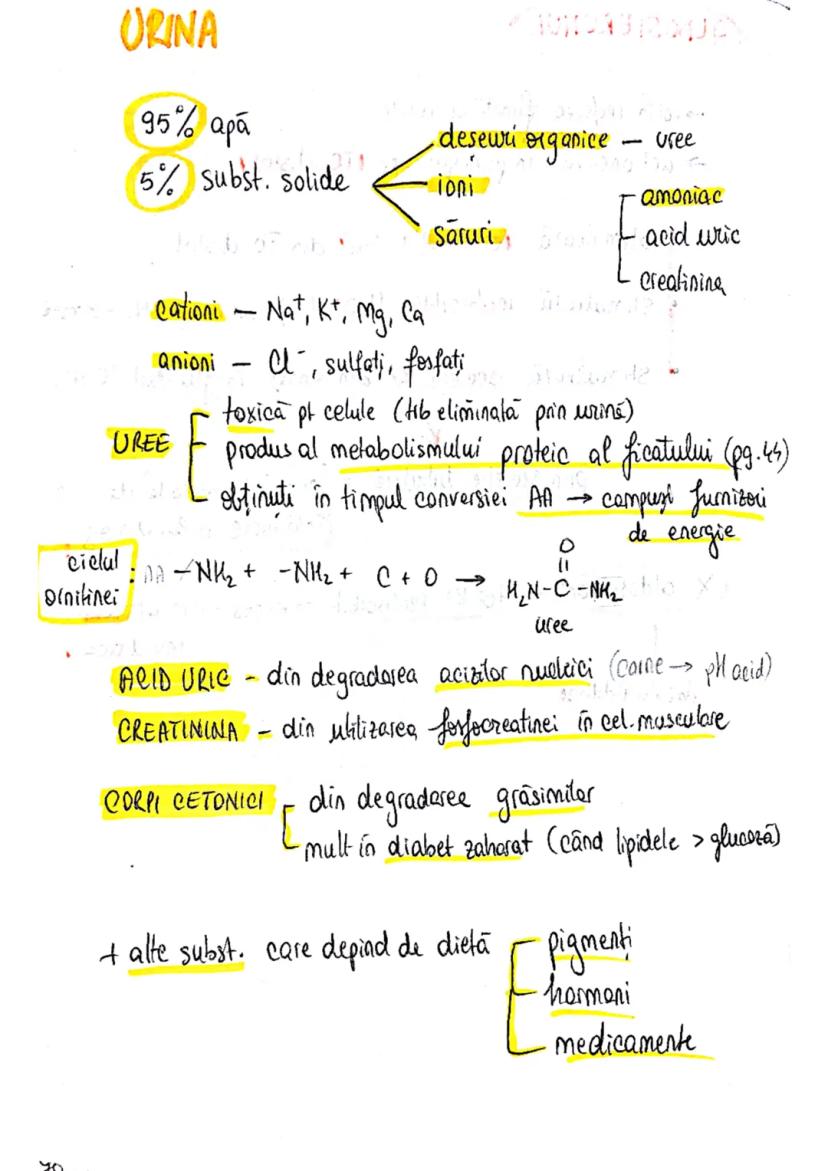 URINA
95% apă
5% subst. solide
deseuri organice — uree
ioni
săruri
amoniac
acid uric
creatinina
cationi — Na⁺, K⁺, Mg, Ca
anioni — Cl⁻, sulfați, fosfați
UREE
toxică pt celule (tb eliminată prin urină)
produs al metabolismului proteic al ficatului (pg.44)
obținuți în timpul conversiei AA → compuși furnizori
de energie
ciclul ornitinei : AA −NH₂ + −NH₂ + C + O →
O
H₂N-C-NH₂
uree
ACID URIC - din degradarea acizilor nucleici (carne → pH acid)
CREATININA - din utilizarea fosfocreatinei în cel. musculare
CORPI CETONICI
din degradarea grăsimilor
mult în diabet zaharat (când lipidele > glucoză)
+ alte subst. care depind de dietă
pigmenți
hormoni
medicamente